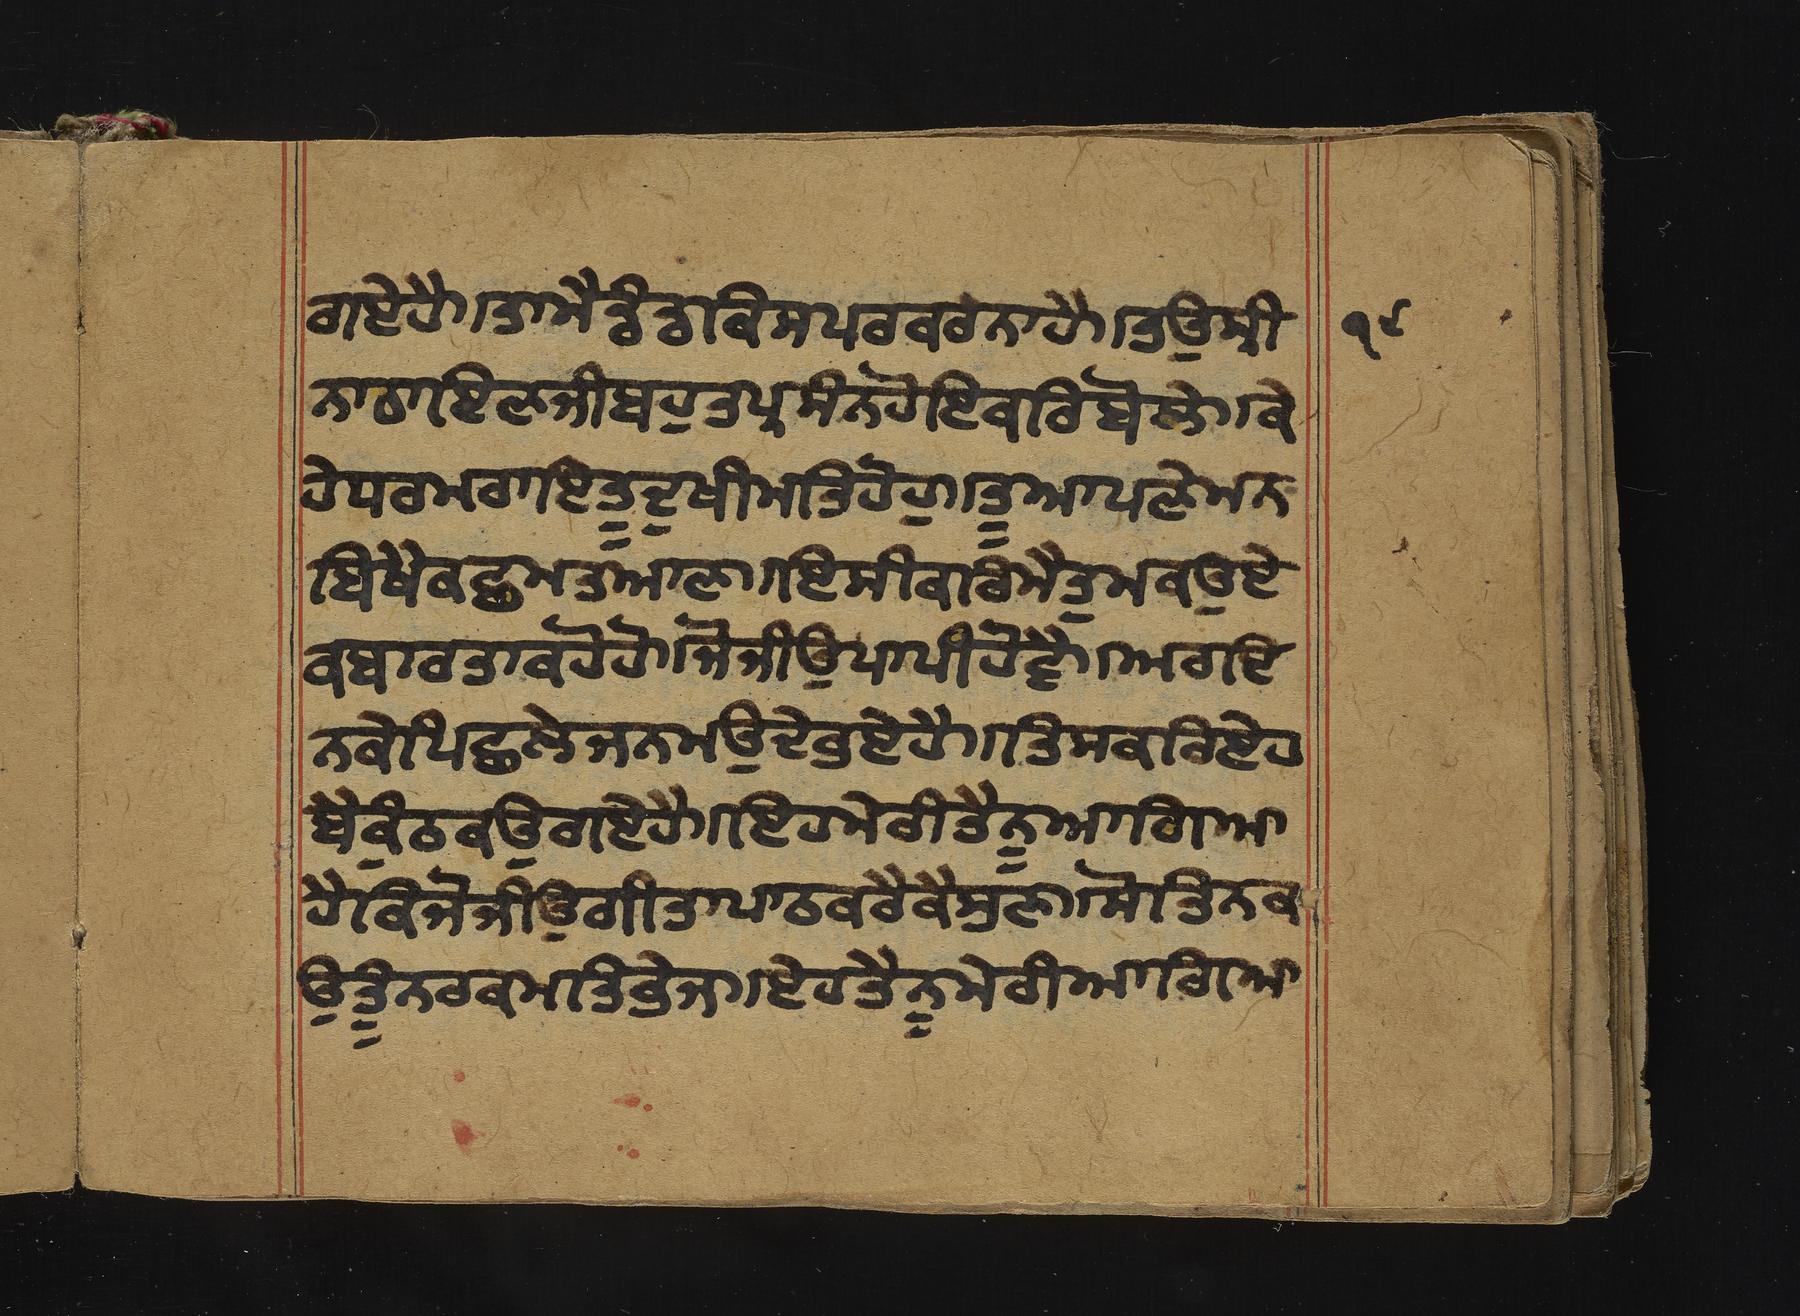 ਗਏਹੈ।ਤਾਮੈਤ੍ਰਿੰਡਾਕਿਸਪਰਕਰਨਾਹੈ।ਤਉਸ੍ਰੀ ੧੮
ਨਾਰਾਇਣਜੀਬਹੁਤਪ੍ਰਸੰਨਹੋਇਕਰਿਬੋਲੇ।ਕੇ
ਹੇਧਰਮਰਾਇਤੂਦੁਖੀਮਤਿਹੋਹੁ।ਤੂਆਪਣੇਮਨ
ਬਿਖੈਕਛੁਮਤਆਣ।ਇਸੀਕਾਰਿਮੈਤੁਮਕਉਏ
ਕਬਾਰਤਾਕਹੋਹੋ।ਜੋਜੀਉਪਾਪੀਹੋਵੈ।ਅਗਦਿ
ਨਕੇਪਿਛਲੇਜਨਮਉਦੇਭੁਏਹੈ।ਤਿਸਕਰਿਏਹ
ਬੈਕੁੰਠਕਉਗਏਹੈ।ਇਹਮੇਰੀਤੈਨੂਆਗਿਆ
ਹੈਕਿਜੋਜੀਉਗੀਤਾਪਾਠਕਰੈਕੈਸੁਣ।ਸੋਤਿਨਕ
ਉਤੂੰਨਰਕਮਤਿਭੇਜ।ਏਹਤੈਨੂਮੇਰੀਆਗਿਆ